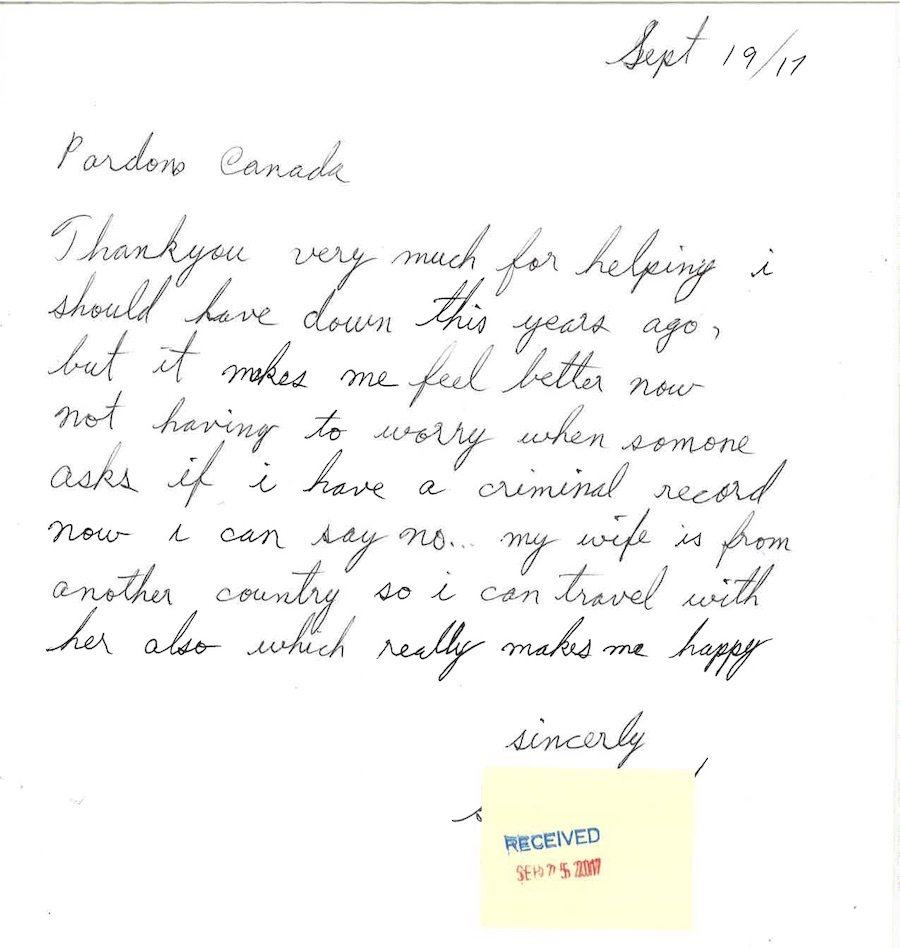 Sept 19/17
Pardons Canada
Thankyou very much for helping i
should have down this years ago,
but it makes me feel better now
not having to worry when somone
asks if i have a criminal record
now i can say no... my wife is from
another country so i can travel with
her also which really makes me happy
sincerly
RECEIVED
SEP 25 2017